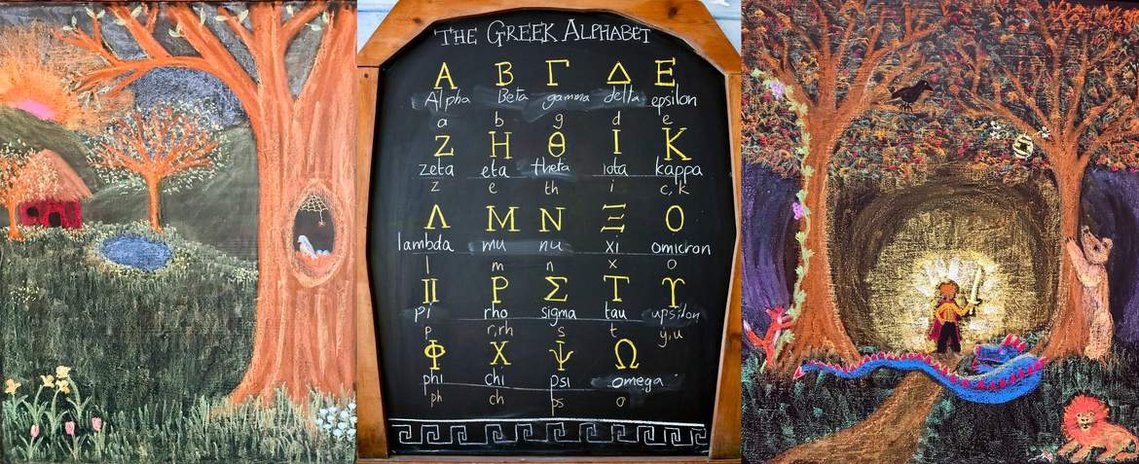 THE GREEK ALPHABET
Α Β Γ Δ Ε
Alpha Beta gamma delta epsilon
a b g d e
Ζ Η Θ Ι Κ
zeta eta theta iota kappa
z e th i c, k
Λ Μ Ν Ξ Ο
lambda mu nu xi omicron
l m n x o
Π Ρ Σ Τ ϒ
pi rho sigma tau upsilon
p r,rh s t y,u
Φ Χ Ψ Ω
phi chi psi omega
ph ch ps o